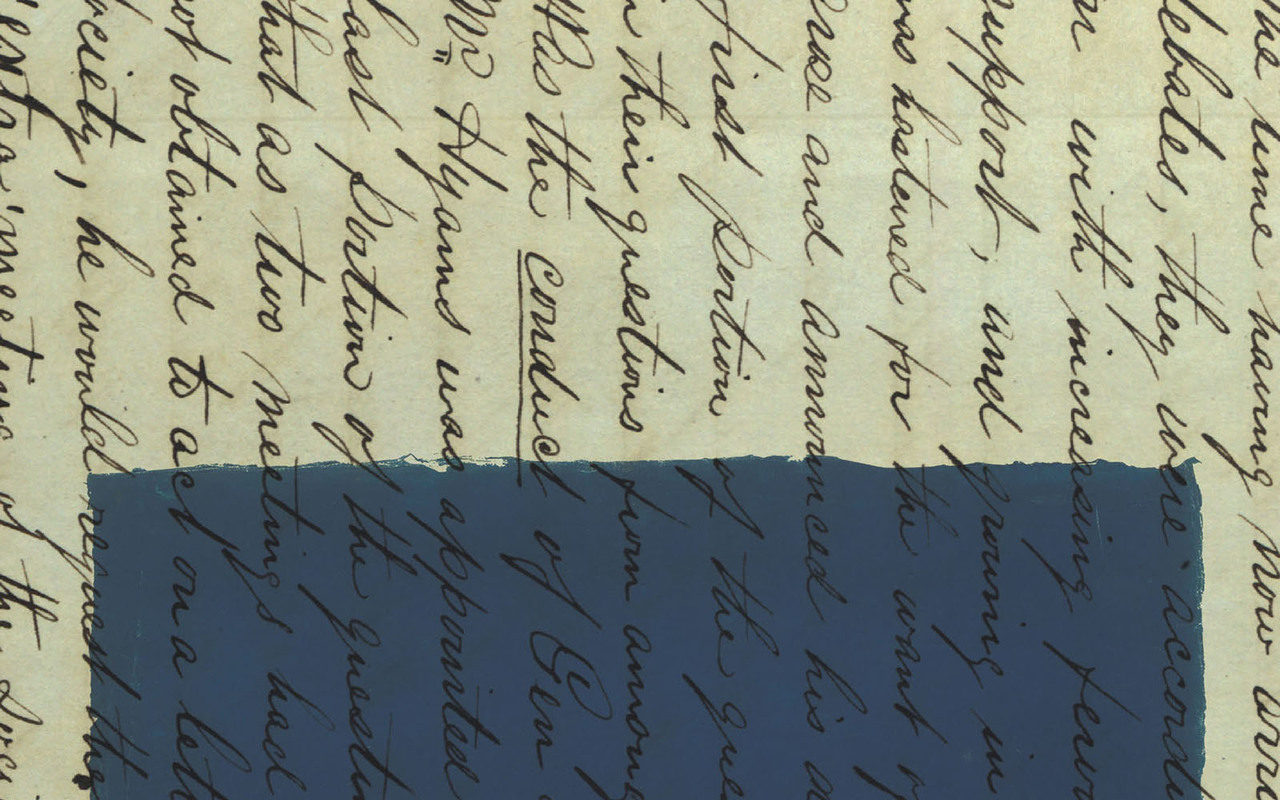 the time having now
debates, they were accordi
with increasing ferv
support, and going in
was hastened for the want
and announced his
first portion of the que
their questions from among
Was the conduct of Gen
Mr Hyams was appointed
last portion of the questi
that as two meetings had
not obtained to act on a lett
ciety, he would request the
meetings of the Soci